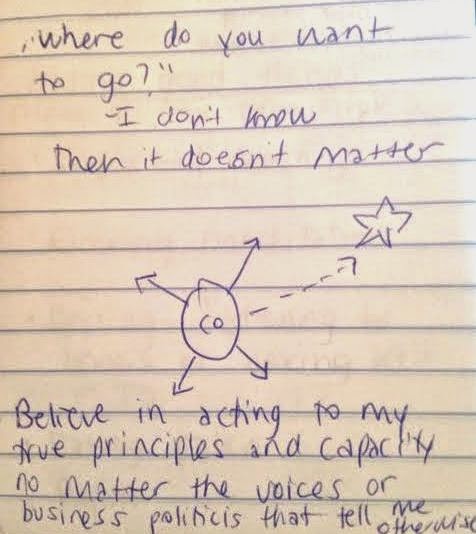 "Where do you want
to go?"
-I don't know
Then it doesn't matter
CO
Believe in acting to my
true principles and capacity
no matter the voices or
business politicis that tell me
otherwise